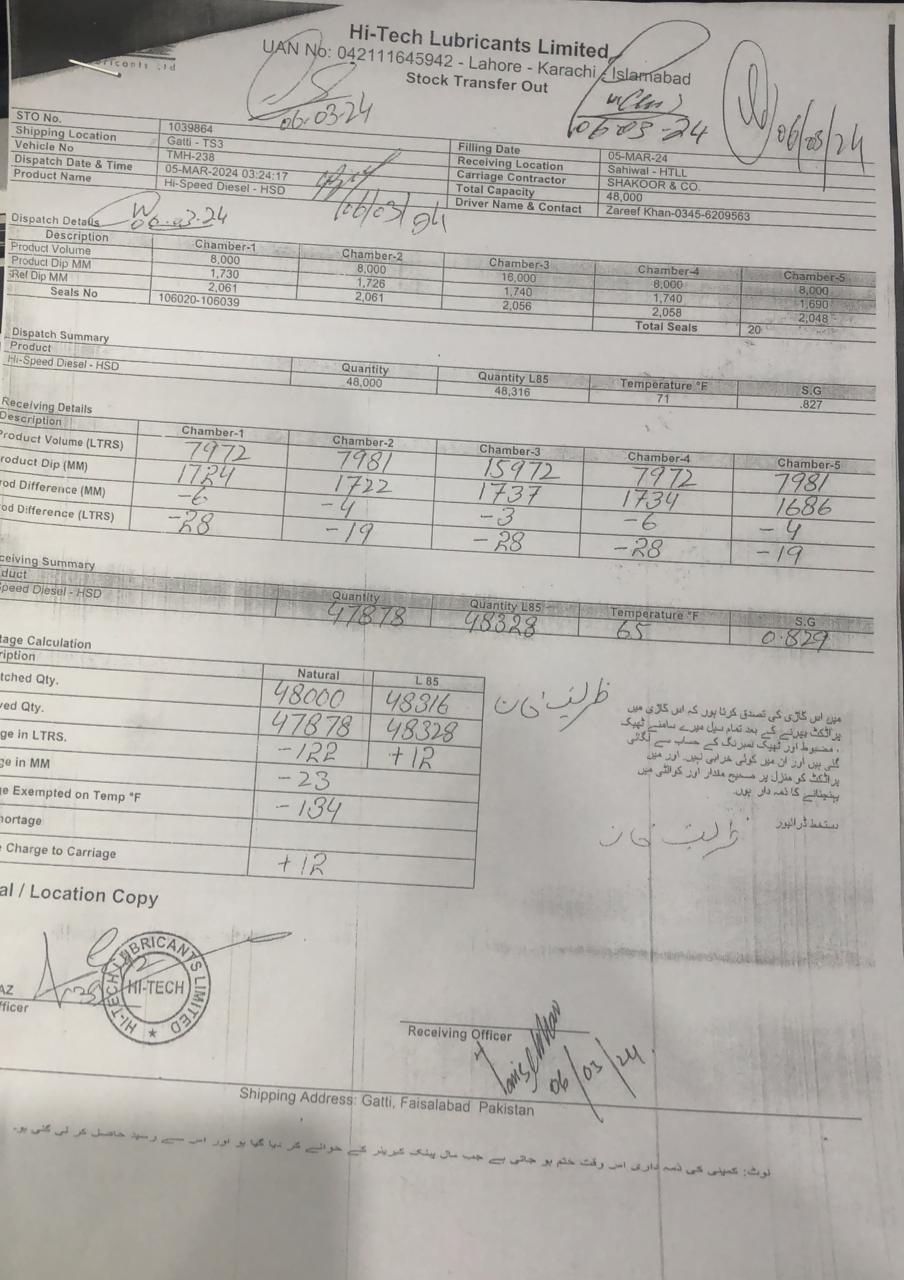 ricants Ltd
Hi-Tech Lubricants Limited
UAN No: 042111645942 - Lahore - Karachi - Islamabad
Stock Transfer Out
06-03-24
06-03-24
06/03/24
STO No. 1039864
Shipping Location Gatti - TS3
Vehicle No TMH-238
Dispatch Date & Time 05-MAR-2024 03:24:17
Product Name Hi-Speed Diesel - HSD
Filling Date 05-MAR-24
Receiving Location Sahiwal - HTLL
Carriage Contractor SHAKOOR & CO.
Total Capacity 48,000
Driver Name & Contact Zareef Khan-0345-6209563
06/03/24
06-03-24
Dispatch Details
Description Chamber-1 Chamber-2 Chamber-3 Chamber-4 Chamber-5
Product Volume 8,000 8,000 16,000 8,000 8,000
Product Dip MM 1,730 1,726 1,740 1,740 1,690
Ref Dip MM 2,061 2,061 2,056 2,058 2,048
Seals No 106020-106039 Total Seals 20
Dispatch Summary
Product Quantity Quantity L85 Temperature °F S.G
Hi-Speed Diesel - HSD 48,000 48,316 71 .827
Receiving Details
Description Chamber-1 Chamber-2 Chamber-3 Chamber-4 Chamber-5
Product Volume (LTRS) 7972 7981 15972 7972 7981
roduct Dip (MM) 1724 1722 1737 1734 1686
rod Difference (MM) -6 -4 -3 -6 -4
od Difference (LTRS) -28 -19 -28 -28 -19
ceiving Summary
duct Quantity Quantity L85 Temperature °F S.G
Speed Diesel - HSD 47878 48328 65 0.829
tage Calculation
ription Natural L 85
tched Qty. 48000 48316
ved Qty. 47878 48328
ge in LTRS. -122 +12
ge in MM -23
e Exempted on Temp °F -134
hortage
e Charge to Carriage +12
ظریف خان
میں اس گاڑی کی تصدق کرتا ہوں کہ اس گاڑی میں
پراڈکٹ بھرنے کے بعد تمام سیل میرے سامنے ٹھیک
، مضبوط اور ٹھیک نمبرنگ کے حساب سے لگائی
گئی ہیں اور ان میں کوئی خرابی نہیں۔ اور میں
پراڈکٹ کو منزل پر صحیح مقدار اور کوالٹی میں
پہنچانے کا ذمہ دار ہوں۔
دستخط ڈرائیور
ظریف خان
al / Location Copy
HI-TECH LUBRICANTS LIMITED
HI-TECH
AZ
fficer
Receiving Officer
06/03/24
Shipping Address: Gatti, Faisalabad Pakistan
نوٹ: کمپنی کی ذمہ داری اس وقت ختم ہو جاتی ہے جب مال پینک کیریئر کے حوالے کر دیا گیا ہو اور اس سے رسید حاصل کر لی گئی ہو۔